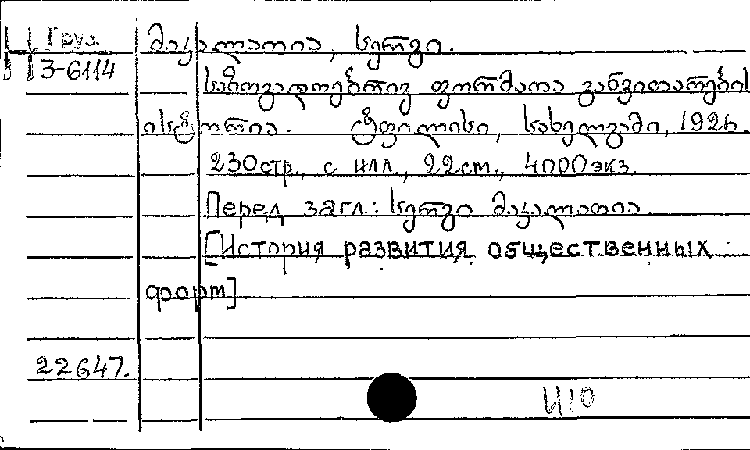 Груз. მაკალათია, სერგი.
3-6114
საზოგადოებრივ ფორმათა განვითარების
ისტორია. ტფილისი, სახელგამი, 1926.
230стр., с илл., 22см., 4000экз.
Перед загл: სერგი მაკალათია.
[История развития общественных
форм]
22647.
И10